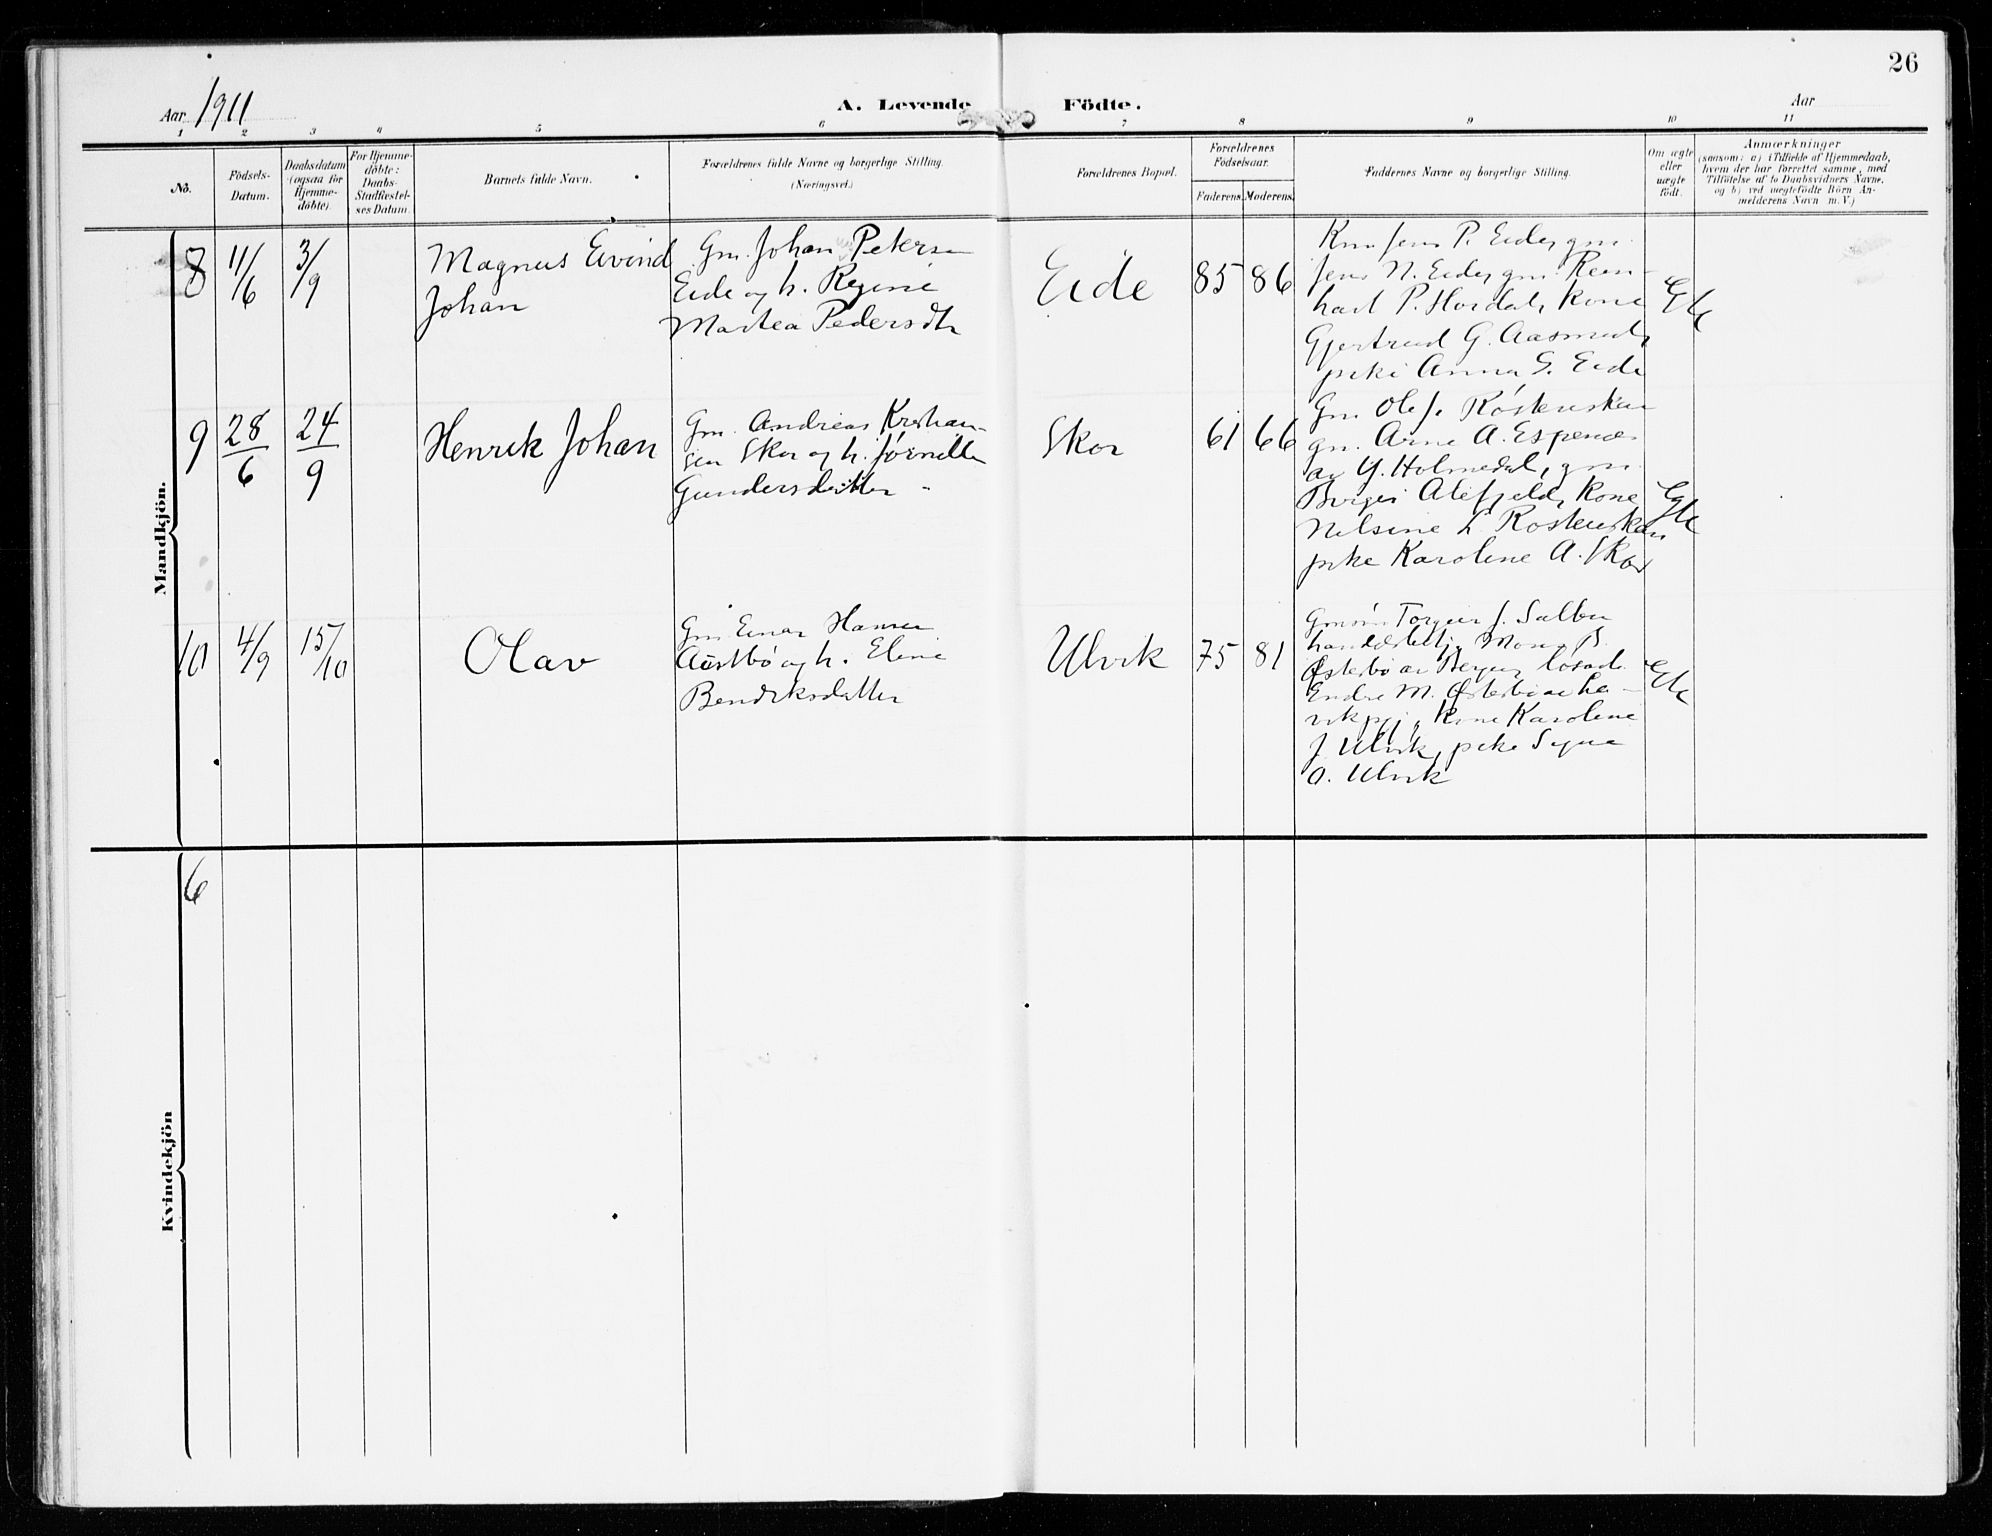 26
Aar 1911
A. Levende Födte.
Aar
1 2 3 4 5 6 7 8 9 10 11
No.
Födsels-Datum.
Daabsdatum (ogsaa for Hjemme-döbte).
For Hjemme-döbte: Daabs-Stadfæstel-ses Datum.
Barnets fulde Navn.
Forældrenes fulde Navne og borgerlige Stilling.
(Næringsvei.)
Forældrenes Bopæl.
Forældrenes Födselsaar.
Faderens. Moderens.
Faddernes Navne og borgerlige Stilling.
Om ægte eller uægte födt.
Anmærkninger
(saasom: a) i Tilfælde af Hjemmedaab,
hvem der har forrettet samme, med
Tilföielse af to Daabsvidners Navne,
og b) ved uægtefödte Börn An-
melderens Navn m. V.)
Mandkjön.
8 11/6 3/9
Magnus Eivind
Johan
Gm. Johan Petersen
Eide og h. Regine
Martea Pedersdtr
Eide 85 86
Km Jens P. Eide, gm.
Jens N. Eide, gm. Rein-
hart P. Hordal, kone
Gjertrud G. Aasmul,
pike Anna S. Eide
Egte
9 28/6 24/9
Henrik Johan
Gm. Andreas Kristian-
sen Skor og h. Jörnette
Gundersdatter
Skor 61 66
Gm. Ole J. Röstenskar
gm. Arne A. Espenes
av Y. Holmedal, gm.
Borger Alefjeld, kone
Nelsine L. Rostenskar
pike Karolene A. Skor
Egte
10 4/9 15/10
Olav
Gm. Einar Hansen
Austbö og h. Eline
Bendiksdatter
Ulvik 75 81
Gmsøn Torgeir J. Salbu
Mons B.
Østerbö av Bergen,
Endre M. Østerbö av Le-
vik pgj., kone Karolene
J. Ulvik, pike Signe
O. Ulvik
Egte
Kvindekjön
6